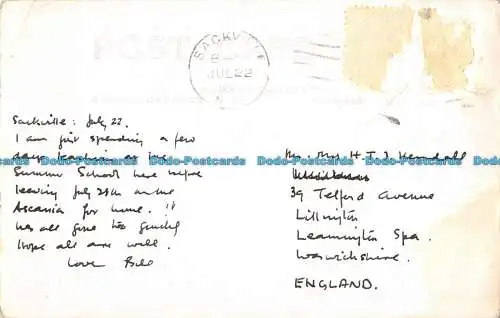 SACKVILLE
JUL 22
POSTCARD
Sackville: July 22.
I am just spending a few
days teaching at the
Summer School here before
leaving July 28th on the
Ascania for home. It
has all gone too quickly
Hope all are well.
Love Bill
Mr. Mrs H. T. J. Kendall
39 Telford Avenue
Lillington
Leamington Spa.
Warwickshire.
ENGLAND.
Dodo-Postcards Dodo-Postcards Dodo-Postcards Dodo-Postcards Dodo-Postcards